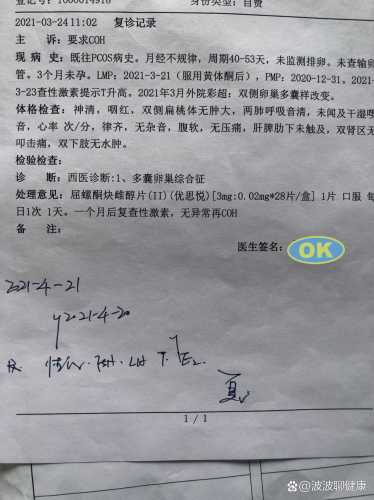 登记号：1000014918 身份类型：自费
2021-03-24 11:02 复诊记录
主 诉：要求COH
现 病 史：既往PCOS病史。月经不规律，周期40-53天，未监测排卵。未查输卵
管。3个月未孕。LMP：2021-3-21（服用黄体酮后），PMP：2020-12-31。2021-
3-23查性激素提示T升高。2021年3月外院彩超：双侧卵巢多囊样改变。
体格检查：神清，咽红，双侧扁桃体无肿大，两肺呼吸音清，未闻及干湿啰
音，心率 次/分，律齐，无杂音，腹软，无压痛，肝脾肋下未触及，双肾区无
叩击痛，双下肢无水肿。
检验检查：
诊 断：西医诊断:1、多囊卵巢综合征
处理意见：屈螺酮炔雌醇片(II)(优思悦)[3mg:0.02mg*28片/盒] 1片 口服 每
日1次 1天。一个月后复查性激素，无异常再COH
备 注：
医生签名：OK
2021-4-21
2021-4-20
FSH. LH T. E2.
1 / 1
@波波聊健康